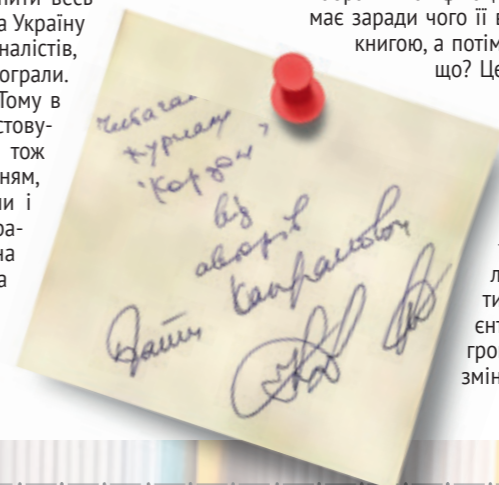 нити весь
а Україну
налістів,
ограли.
Тому в
стову-
тож
ням,
и і
ра-
на
а
має заради чого її в
книгою, а потім
що? Це
Читачам
журналу
"Кордон"
від
авторів
Брати Капранови
л
ти
єнт
гро
змін